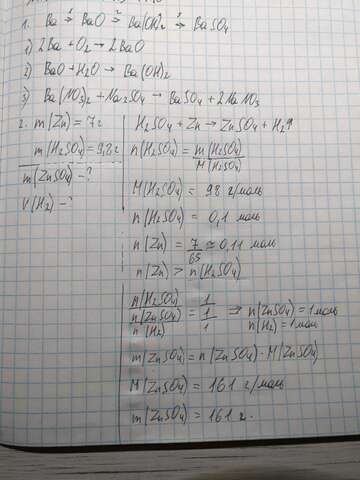 1. Ba →¹ BaO →² Ba(OH)₂ →³ BaSO₄
1) 2Ba + O₂ → 2BaO
2) BaO + H₂O → Ba(OH)₂
3) Ba(NO₃)₂ + Na₂SO₄ → BaSO₄ + 2NaNO₃
2. m(Zn) = 7г
m(H₂SO₄) = 9,8г
m(ZnSO₄) - ?
V(H₂) - ?
H₂SO₄ + Zn → ZnSO₄ + H₂↑
n(H₂SO₄) = m(H₂SO₄)/M(H₂SO₄)
M(H₂SO₄) = 98 г/моль
n(H₂SO₄) = 0,1 моль
n(Zn) = 7/65 ≈ 0,11 моль
n(Zn) > n(H₂SO₄)
n(H₂SO₄) 1
n(ZnSO₄) = 1 ⇒ n(ZnSO₄) = 1 моль
n(H₂) 1 n(H₂) = 1 моль
m(ZnSO₄) = n(ZnSO₄) · M(ZnSO₄)
M(ZnSO₄) = 161 г/моль
m(ZnSO₄) = 161 г.